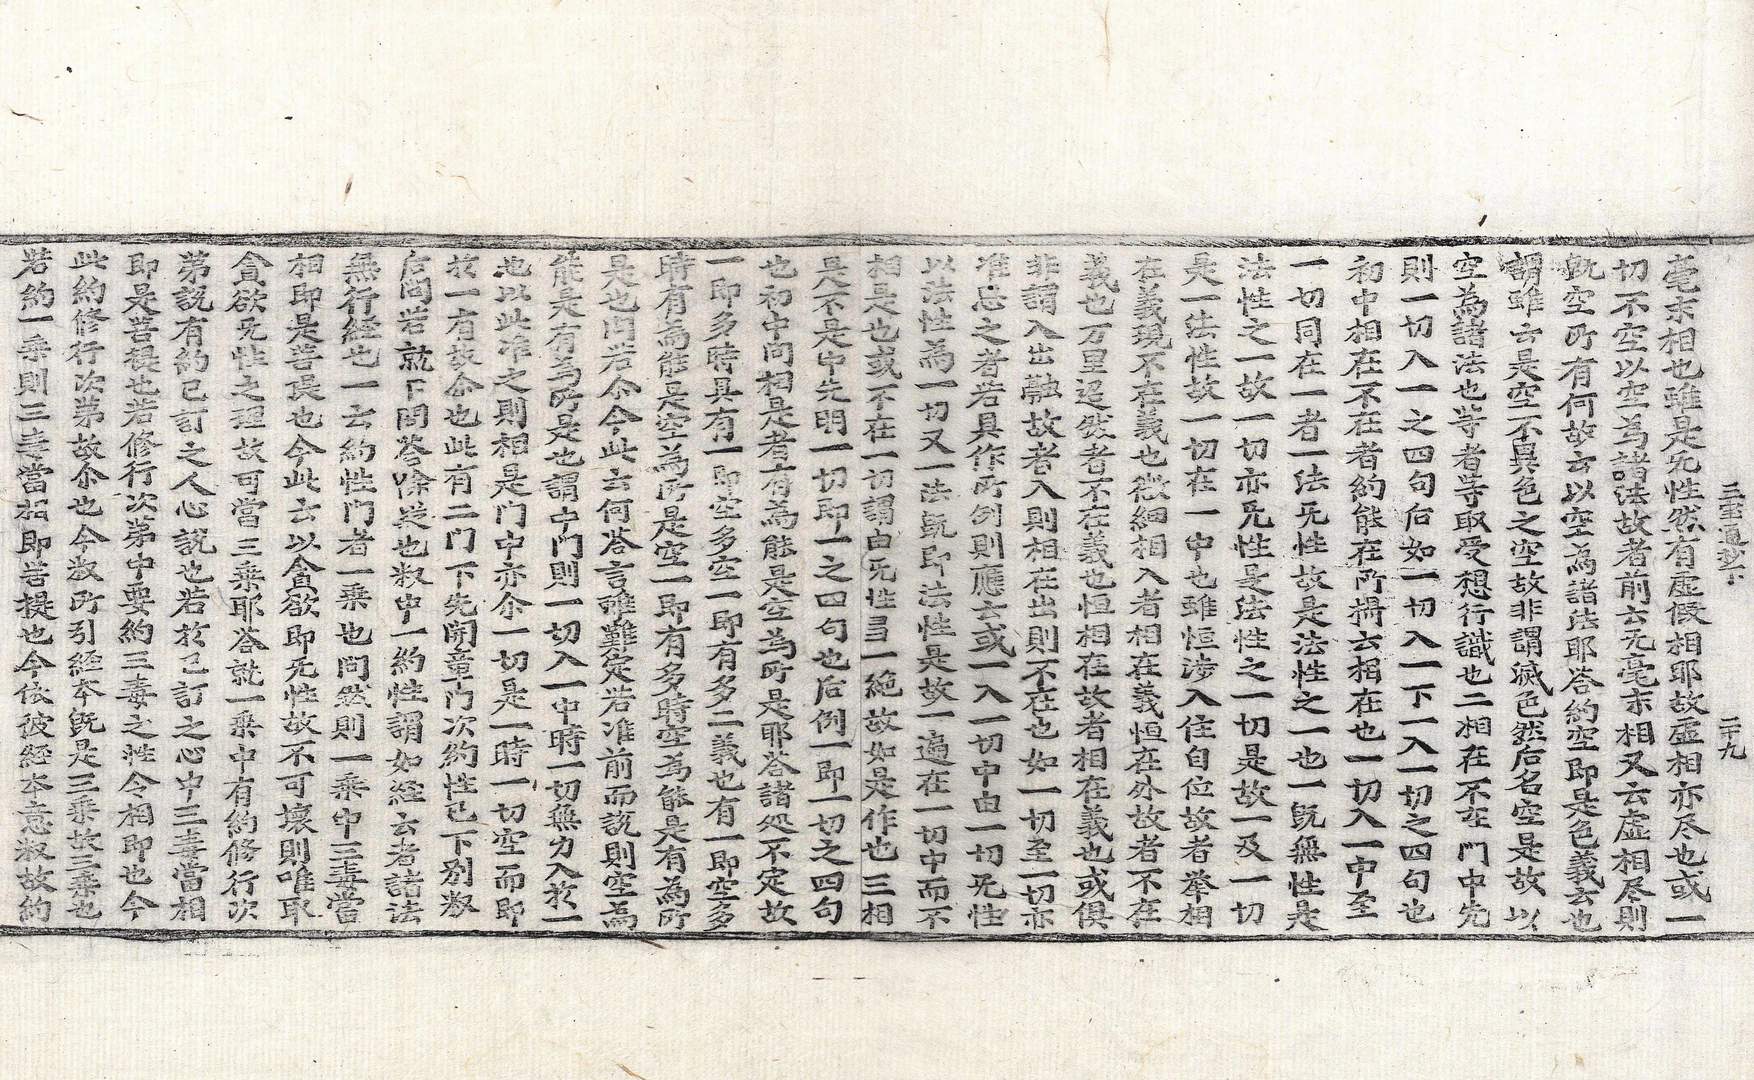 三宝通抄下 二十九
毫末相也雖是无性然有虛假相耶故虛相亦尽也或一
切不空以空為諸法故者前云无毫末相又云虛相尽則
既空所有何故云以空為諸法耶荅約空即是色義云也
謂雖云是空不異色之空故非謂滅色然后名空是故以
空為諸法也等者等取受想行識也二相在不在門中先
則一切入一之四句后如一切入一下一入一切之四句也
初中相在不在者約能在所揚云相在也一切入一中至
一切同在一者一法无性故是法性之一也一既無性是
法性之一故一切亦无性是法性之一切是故一及一切
是一法性故一切在一中也雖恒涉入住自位故者举相
在義現不在義也微細相入者相在義恒在外故者不在
義也万里迢然者不在義也恒相在故者相在義也或俱
非謂入出融故者入則相在出則不在也如一切至一切亦
准忌之者若具作所例則應云或一入一切中由一切无性
以法性為一切又一法既即法性是故一遍在一切中而不
相是也或不在一切謂由无性 一絶故如是作也三相
是不是中先明一切即一之四句也后例一即一切之四句
也初中问相是者有為能是空為所是耶荅諸処不定故
一即多時具有一即空多空一即有多二義也有一即空多
時有為能是空為所是空一即有多時空為能是有為所
是也问若尒今此云何荅言雖難定若准前而說則空為
能是有為所是也謂中門則一切入一中時一切無力入於一
也以此准之則相是门中亦尒一切是一時一切空而即
於一有故尒也此有二门下先開章门次約性已下別叙
后问若就下問荅除疑也叙中一約性謂如経云者諸法
無行経也一云約性门者一乗也问然則一乗中三毒當
相即是菩提也今此云以貪欲即无性故不可壞則唯取
貪欲无性之理故可當三乗耶荅就一乗中有約修行次
第說有約已訂之人心說也若於已訂之心中三毒當相
即是菩提也若修行次第中要約三毒之性令相即也今
此約修行次第故尒也今叙所引経本既是三乗故三乗也
若約一乗則三毒當相即菩提也今依彼経本意叙故約